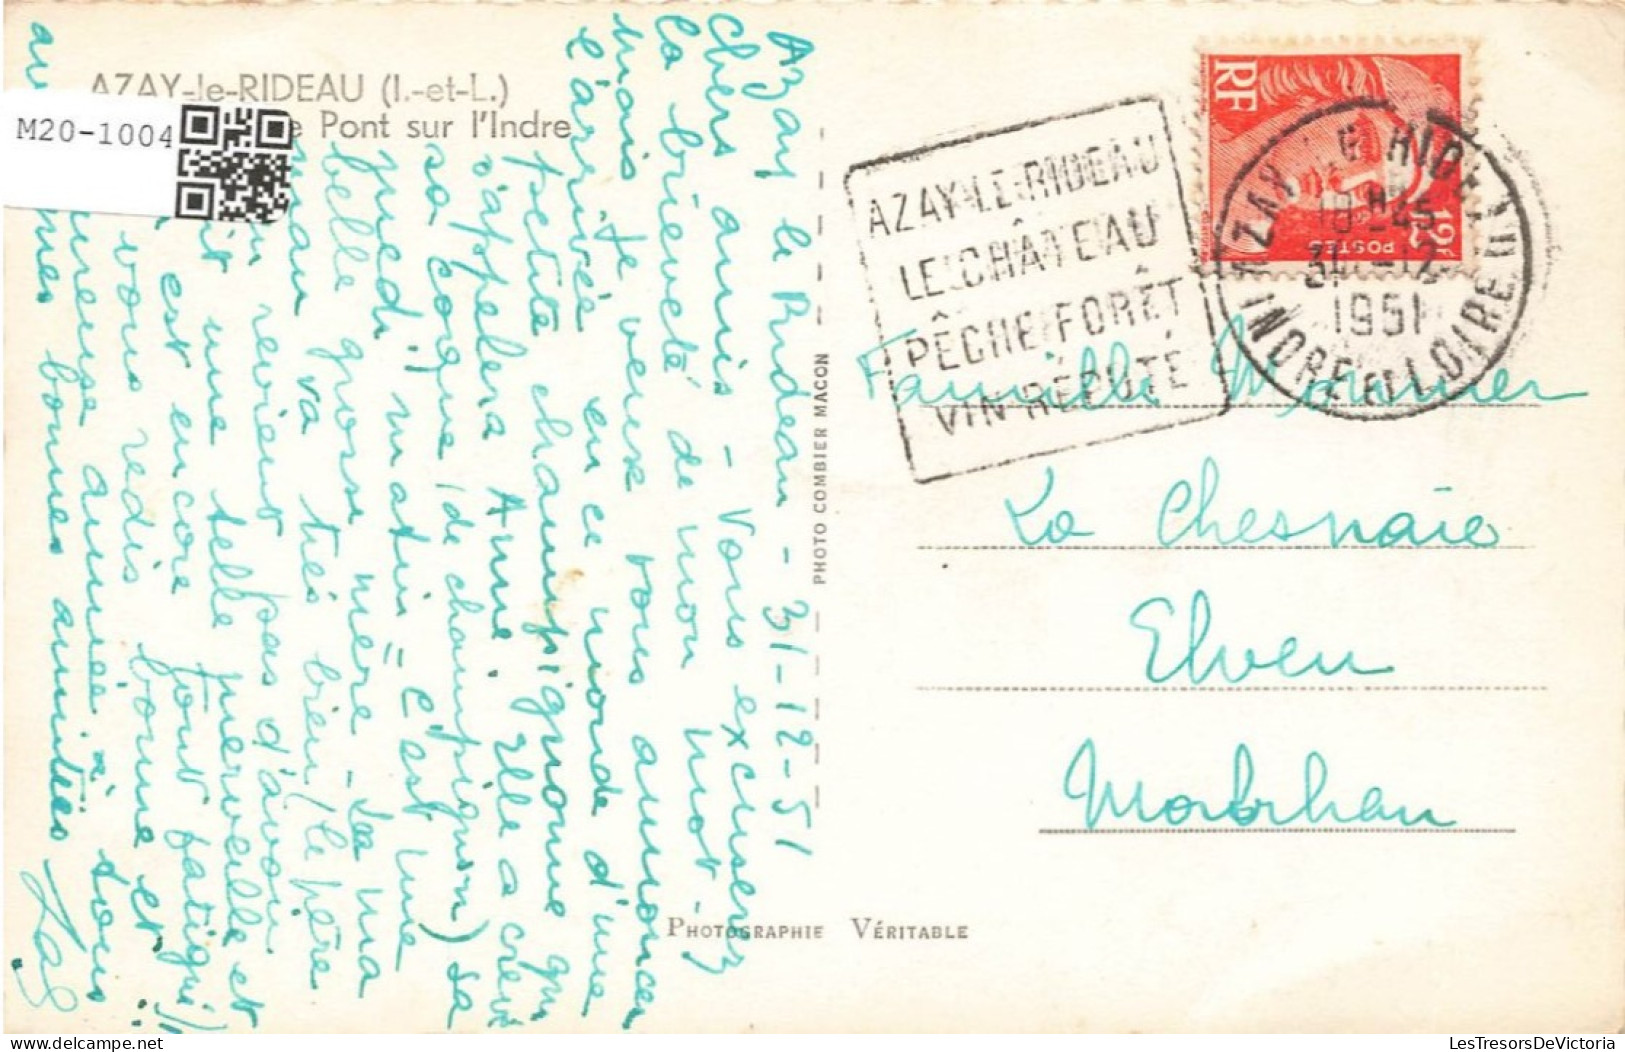 AZAY-le-RIDEAU (I.-et-L.)
Pont sur l'Indre
M20-1004
Azay le Rideau - 31-12-51
Chers amis - Vous excuserez
la brièveté de mon mot -
mais je veux vous annoncer
l'arrivée en ce monde d'une
petite champignonne qui
s'appelera Anne. Elle a crevé
sa coque (de champignon) sa
medi matin = C'est une
belle grosse mère - La ma
man va très bien (le père
revient pas d'avoir
une telle merveille et
est encore tout fatigué)
vous redis bonne et
reuse année à tous
bonnes amitiés
PHOTO COMBIER MACON
PHOTOGRAPHIE VÉRITABLE
AZAY-LE-RIDEAU
LE CHÂTEAU
PÊCHE FORÊT
VIN RÉPUTÉ
RF
POSTES
12F
AZAY LE RIDEAU
18H45
31-12
1951
INDRE ET LOIRE
Famille Monnier
La Chesnaie
Elven
Morbihan
LesTresorsDeVictoria